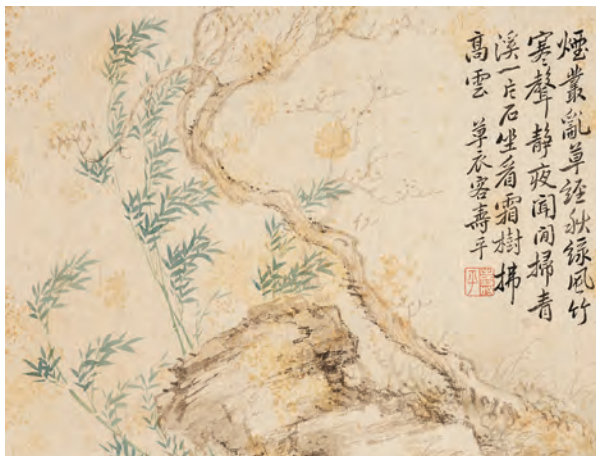 煙叢亂草經秋綠風竹
寒聲静夜聞閒掃青
溪一片石坐看霜樹拂
高雲 草衣客壽平